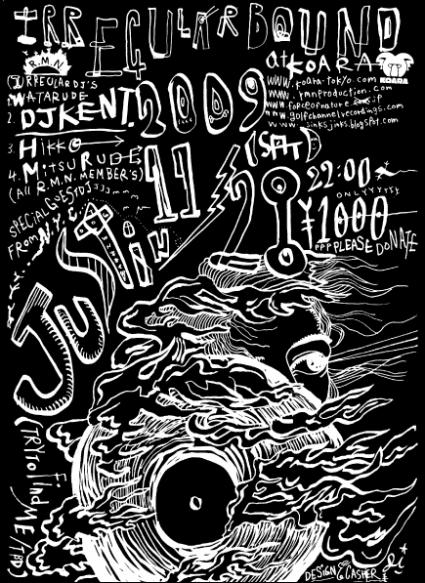 IRREGULAR BOUND
at KOARA
KOARA
R.M.N
www.koara-tokyo.com
www.rmnproduction.com
www.forceofnature.jp
www.golfchannelrecordings.com
www.sinksjinks.blogspot.com
IRREGULAR DJ'S
1. WATARUDE
2. DJ KENT.
3. HIKKO
4. MITSURUDE
(All R.M.N. MEMBER'S)
2009
11/
(SAT)
22:00
ONLYYYYYY
¥1000
PLEASE DONATE
SPECIAL GUEST DJ
FROM N.Y.
JUSTIN
(TRY TO FIND ME/
DESIGN
CASPER